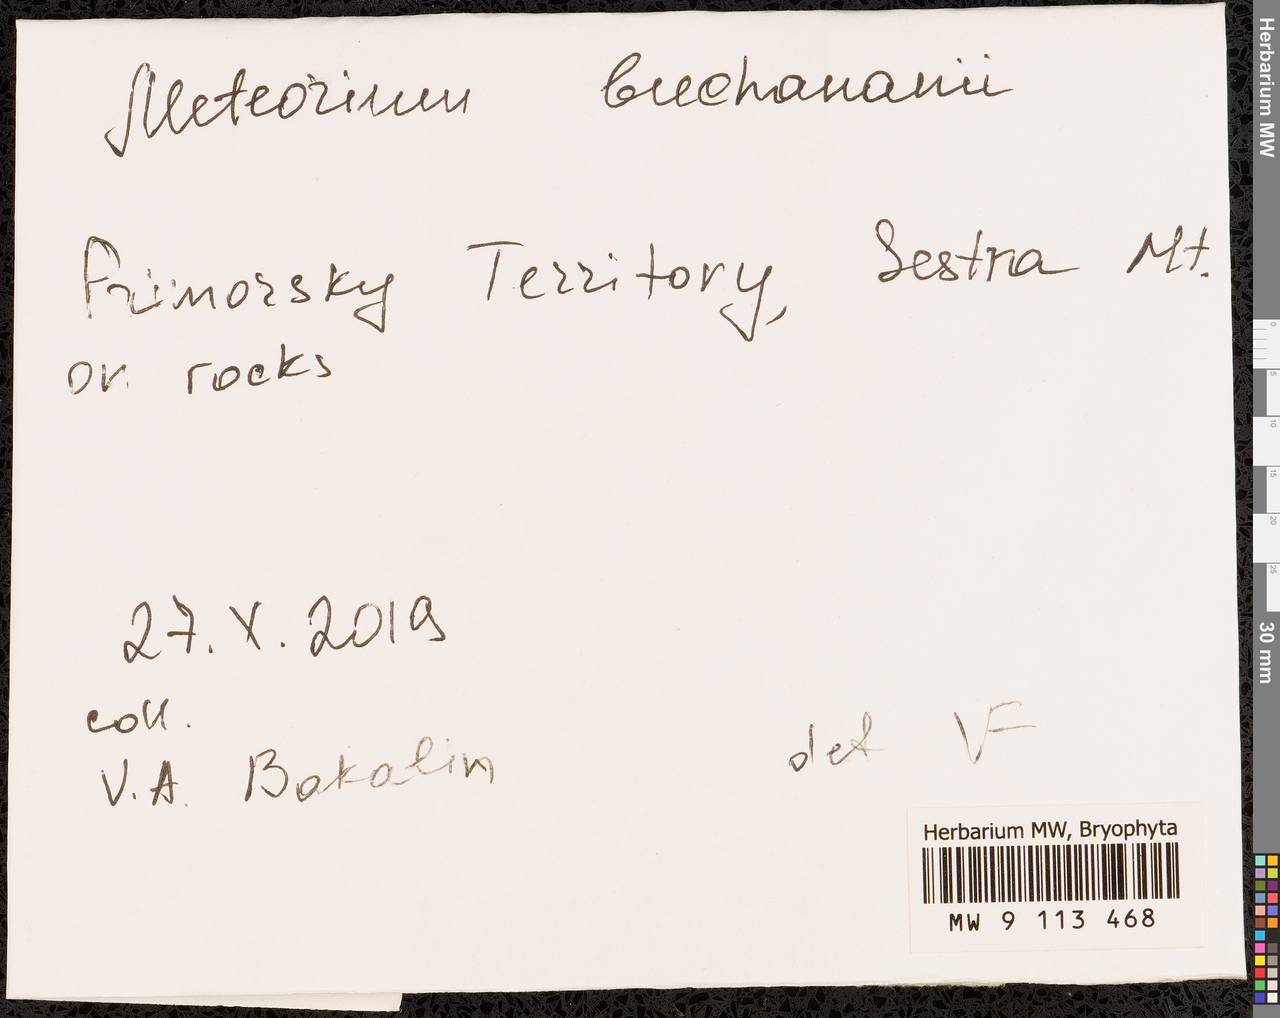 Meteorium buchananii
Primorsky Territory, Sestra Mt.
on rocks
27.X.2019
coll.
V.A. Bakalin
det VF
Herbarium MW, Bryophyta
MW 9 113 468
Herbarium MW
0
5
10
15
20
25
30 mm